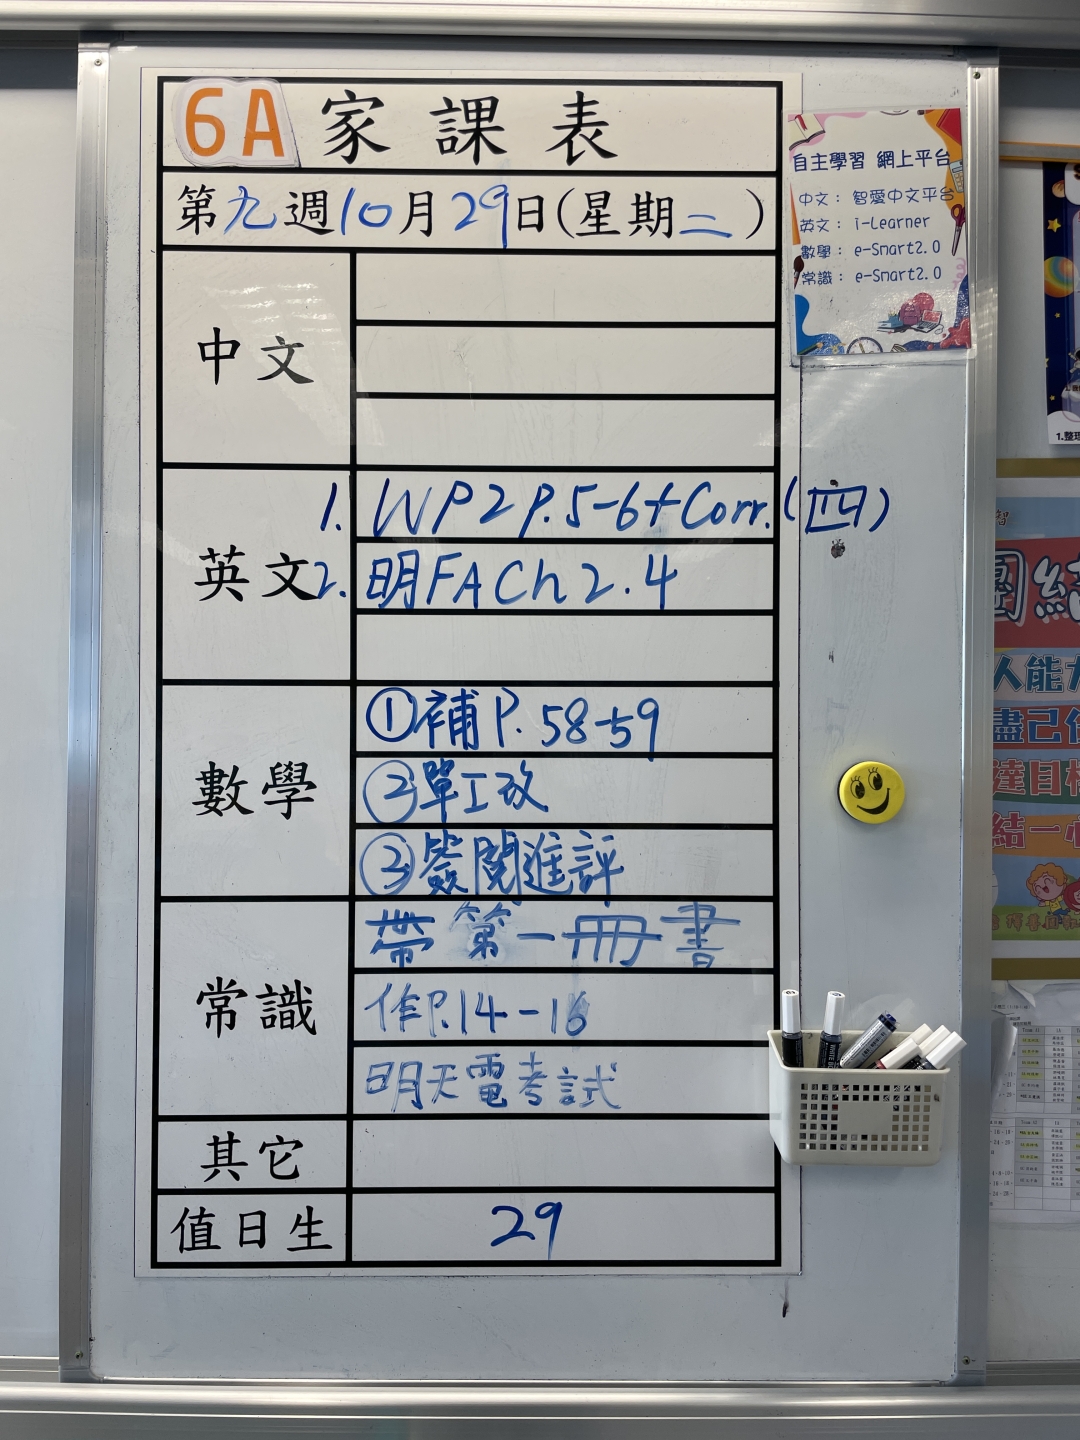 6A 家課表
第九週10月29日(星期二)
中文
英文
1. WP2 P.5-6+Corr.(四)
2. 明FA Ch2.4
數學
①補P.58-59
②單工改
③簽閱進評
常識
帶第一冊書
作P.14-16
明天電考試
其它
值日生
29
自主學習 網上平台
中文：智愛中文平台
英文：i-Learner
數學：e-Smart2.0
常識：e-Smart2.0
1.整理
團結
人能力
盡己任
達目標
結一心